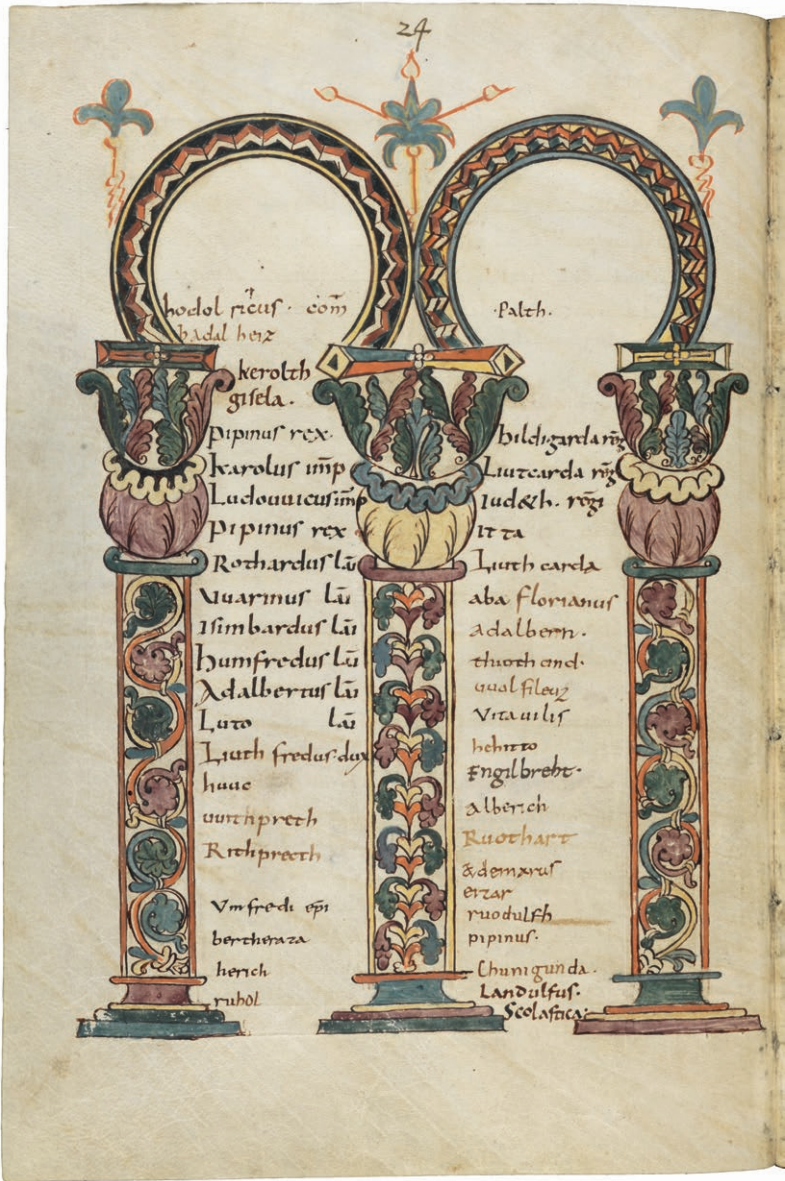 24
hodolricus · com̄
hadalherz
kerolth
gisela ·
pipinus rex ·
karolus im̄p
Ludouuicus im̄p
pipinus rex
Rothardus laī
Vuarinus laī
Isimbardus laī
humfredus laī
Adalbertus laī
Luto laī
Liuthfredus · dux
huuc
Rithpreth
Vmfredi ep̄i
bertherata
herich
ruhol
· palth ·
hildigarda reḡ
Liutcarda reḡ
Iud&h · reḡi
Itta
Liuthcarda
aba florianus
Adalbern ·
Vitauilis
hehitto
Engilbreht ·
Alberich
Ruothart
Ademarus
erzar
ruodulfh
pipinus ·
Chunigunda ·
Landulfus ·
Scolastica ·